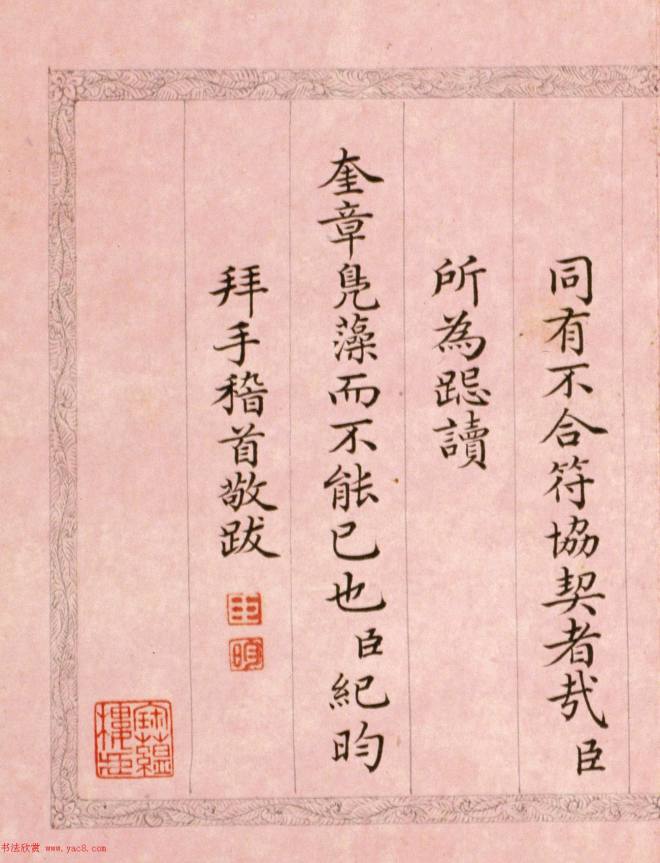 同有不合符協契者哉臣
所為跽讀
奎章鳧藻而不能已也臣紀昀
拜手稽首敬跋
臣
昀
寶蘊樓臣
书法欣赏 www.yac8.com